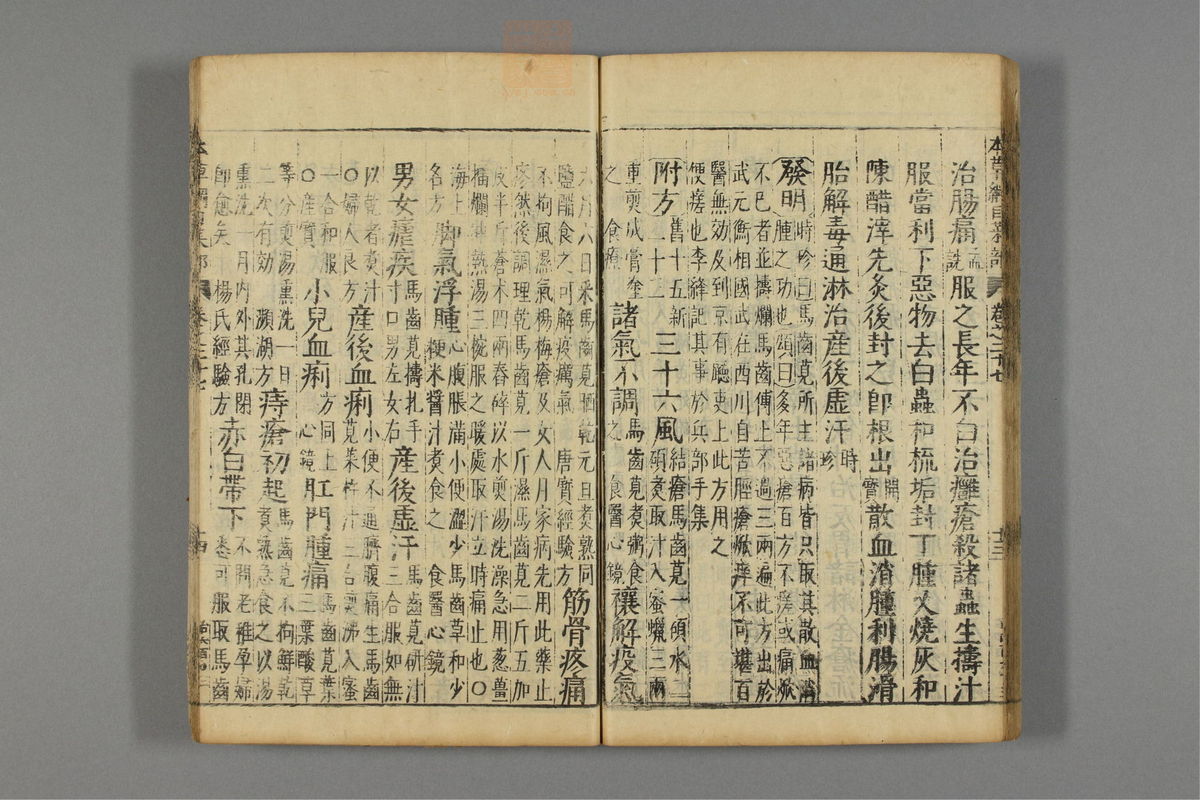 本草綱目菜部 卷之二十七 十三
治腸痛孟詵服之長年不白治癰瘡殺諸蟲生擣汁
服當利下惡物去白蟲和梳垢封丁腫又燒灰和
陳醋滓先灸後封之卽根出開寶散血消腫利腸滑
胎解毒通淋治產後虛汗時珍
發明時珍曰馬齒莧所主諸病皆只取其散血消
腫之功也頌曰多年惡瘡百方不瘥或痛焮
不已者並擣爛馬齒傅上不過三兩遍此方出於
武元衡相國武在西川自苦脛瘡焮痒不可堪百
醫無効及到京有廳吏上此方用之
便瘥也李絳記其事於兵部手集
附方舊十五新二十三 三十六風結瘡馬齒莧一碩水一碩煮取汁入蜜蠟三兩
重煎成膏塗之 食療 諸氣不調馬齒莧煮粥食之 食醫心鏡 禳解疫氣
六月六日采馬齒莧晒乾元旦煮熟同鹽醋食之可解疫癘氣 唐寶經驗方 筋骨疼痛
不拘風濕氣楊梅瘡及女人月家病先用此藥止
疼然後調理乾馬齒莧一斤濕馬齒莧二斤五加
皮半斤蒼术四兩舂碎以水煎湯洗澡急用葱薑
擂爛冲熱湯三碗服之暖處取汗立時痛止也〇
海上名方 脚氣浮腫心腹脹滿小便澀少馬齒草和少粳米醬汁煮食之 食醫心鏡
男女瘧疾馬齒莧擣扎手寸口男左女右 產後虛汗馬齒莧研汁三合服如無
以乾者煮汁〇婦人良方 產後血痢小便不通臍腹痛生馬齒莧菜杵汁三合煎沸入蜜
一合和服〇產寶 小兒血痢方同上 心鏡 肛門腫痛馬齒莧葉三葉酸草
等分煎湯熏洗一日二次有効 瀕湖方 痔瘡初起馬齒莧不拘鮮乾煮熟急食之以湯
熏洗一月內外其孔閉卽愈矣 楊氏經驗方 赤白帶下不問老稚孕婦悉可服取馬齒
本草綱目菜部 卷之二十七 十四